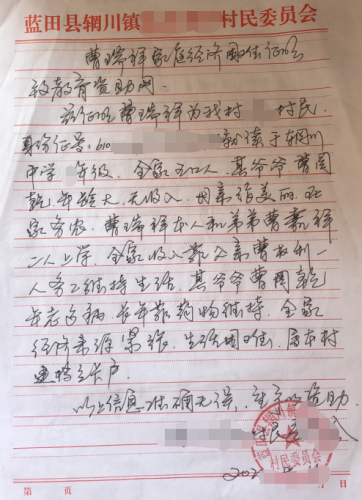 蓝田县辋川镇 村民委员会
曹瑞祥家庭经济困难证明
致教育资助网:
兹证明曹瑞祥为我村 村民,
身份证号:610 就读于辋川
中学 年级,全家五口人,其爷爷曹周
乾,年龄大,无收入,母亲 美丽,在
家务农,曹瑞祥本人和弟弟曹嘉祥
二人上学,全家收入靠父亲曹权利
一人务工维持生活,其爷爷曹周乾
年老多病,长年靠药物维持,全家
经济来源紧张,生活困难,属本村
建档立卡户。
以上信息准确无误,望予以资助
村民委员会
202
第 页 月 日